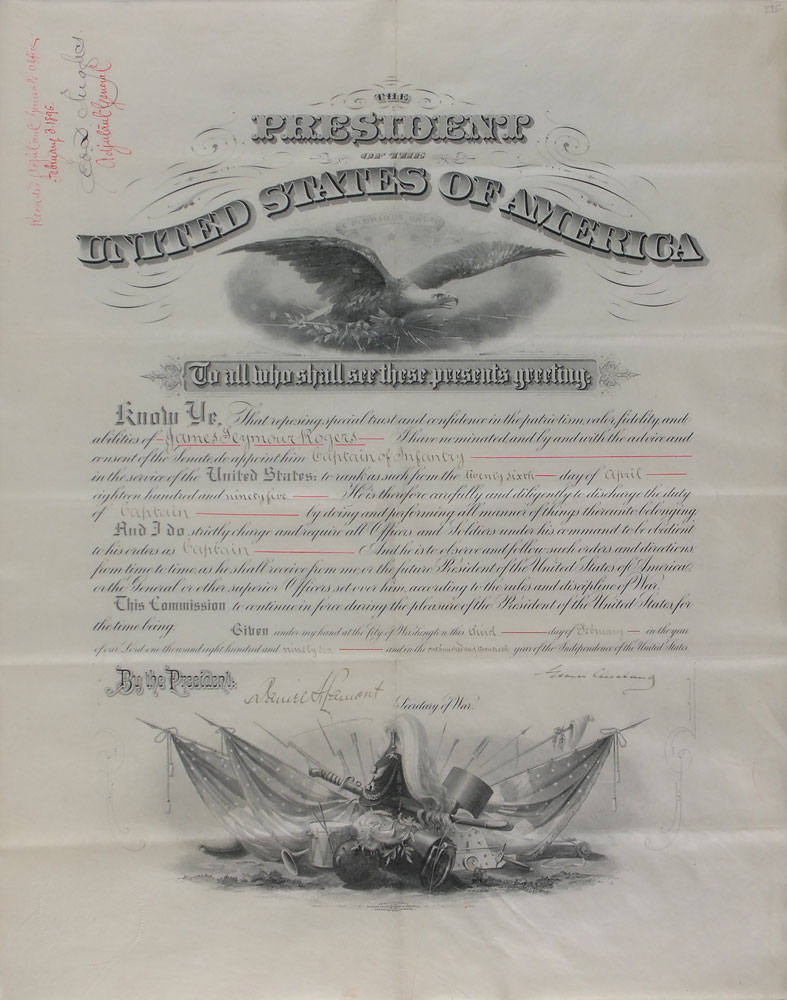 275-
Recorded Adjutant General's Office
February 3 1896.
Adjutant General
THE
PRESIDENT
OF THE
UNITED STATES OF AMERICA
E PLURIBUS UNUM
To all who shall see these presents greeting:
Know Ye, That reposing special trust and confidence in the patriotism, valor, fidelity, and
abilities of James Seymour Rogers I have nominated and by and with the advice and
consent of the Senate do appoint him Captain of Infantry
in the service of the United States: to rank as such from the twenty sixth day of April
eighteen hundred and ninety five He is therefore carefully and diligently to discharge the duty
of Captain by doing and performing all manner of things thereunto belonging.
And I do strictly charge and require all Officers and Soldiers under his command to be obedient
to his orders as Captain And he is to observe and follow such orders and directions
from time to time, as he shall receive from me, or the future President of the United States of America,
or the General or other superior Officers set over him, according to the rules and discipline of War.
This Commission to continue in force during the pleasure of the President of the United States for
the time being.
Given under my hand at the City of Washington this third day of February in the year
of our Lord one thousand eight hundred and ninety six and in the one hundred and twentieth year of the Independence of the United States.
By the President:
Daniel S Lamont
Grover Cleveland
Secretary of War.